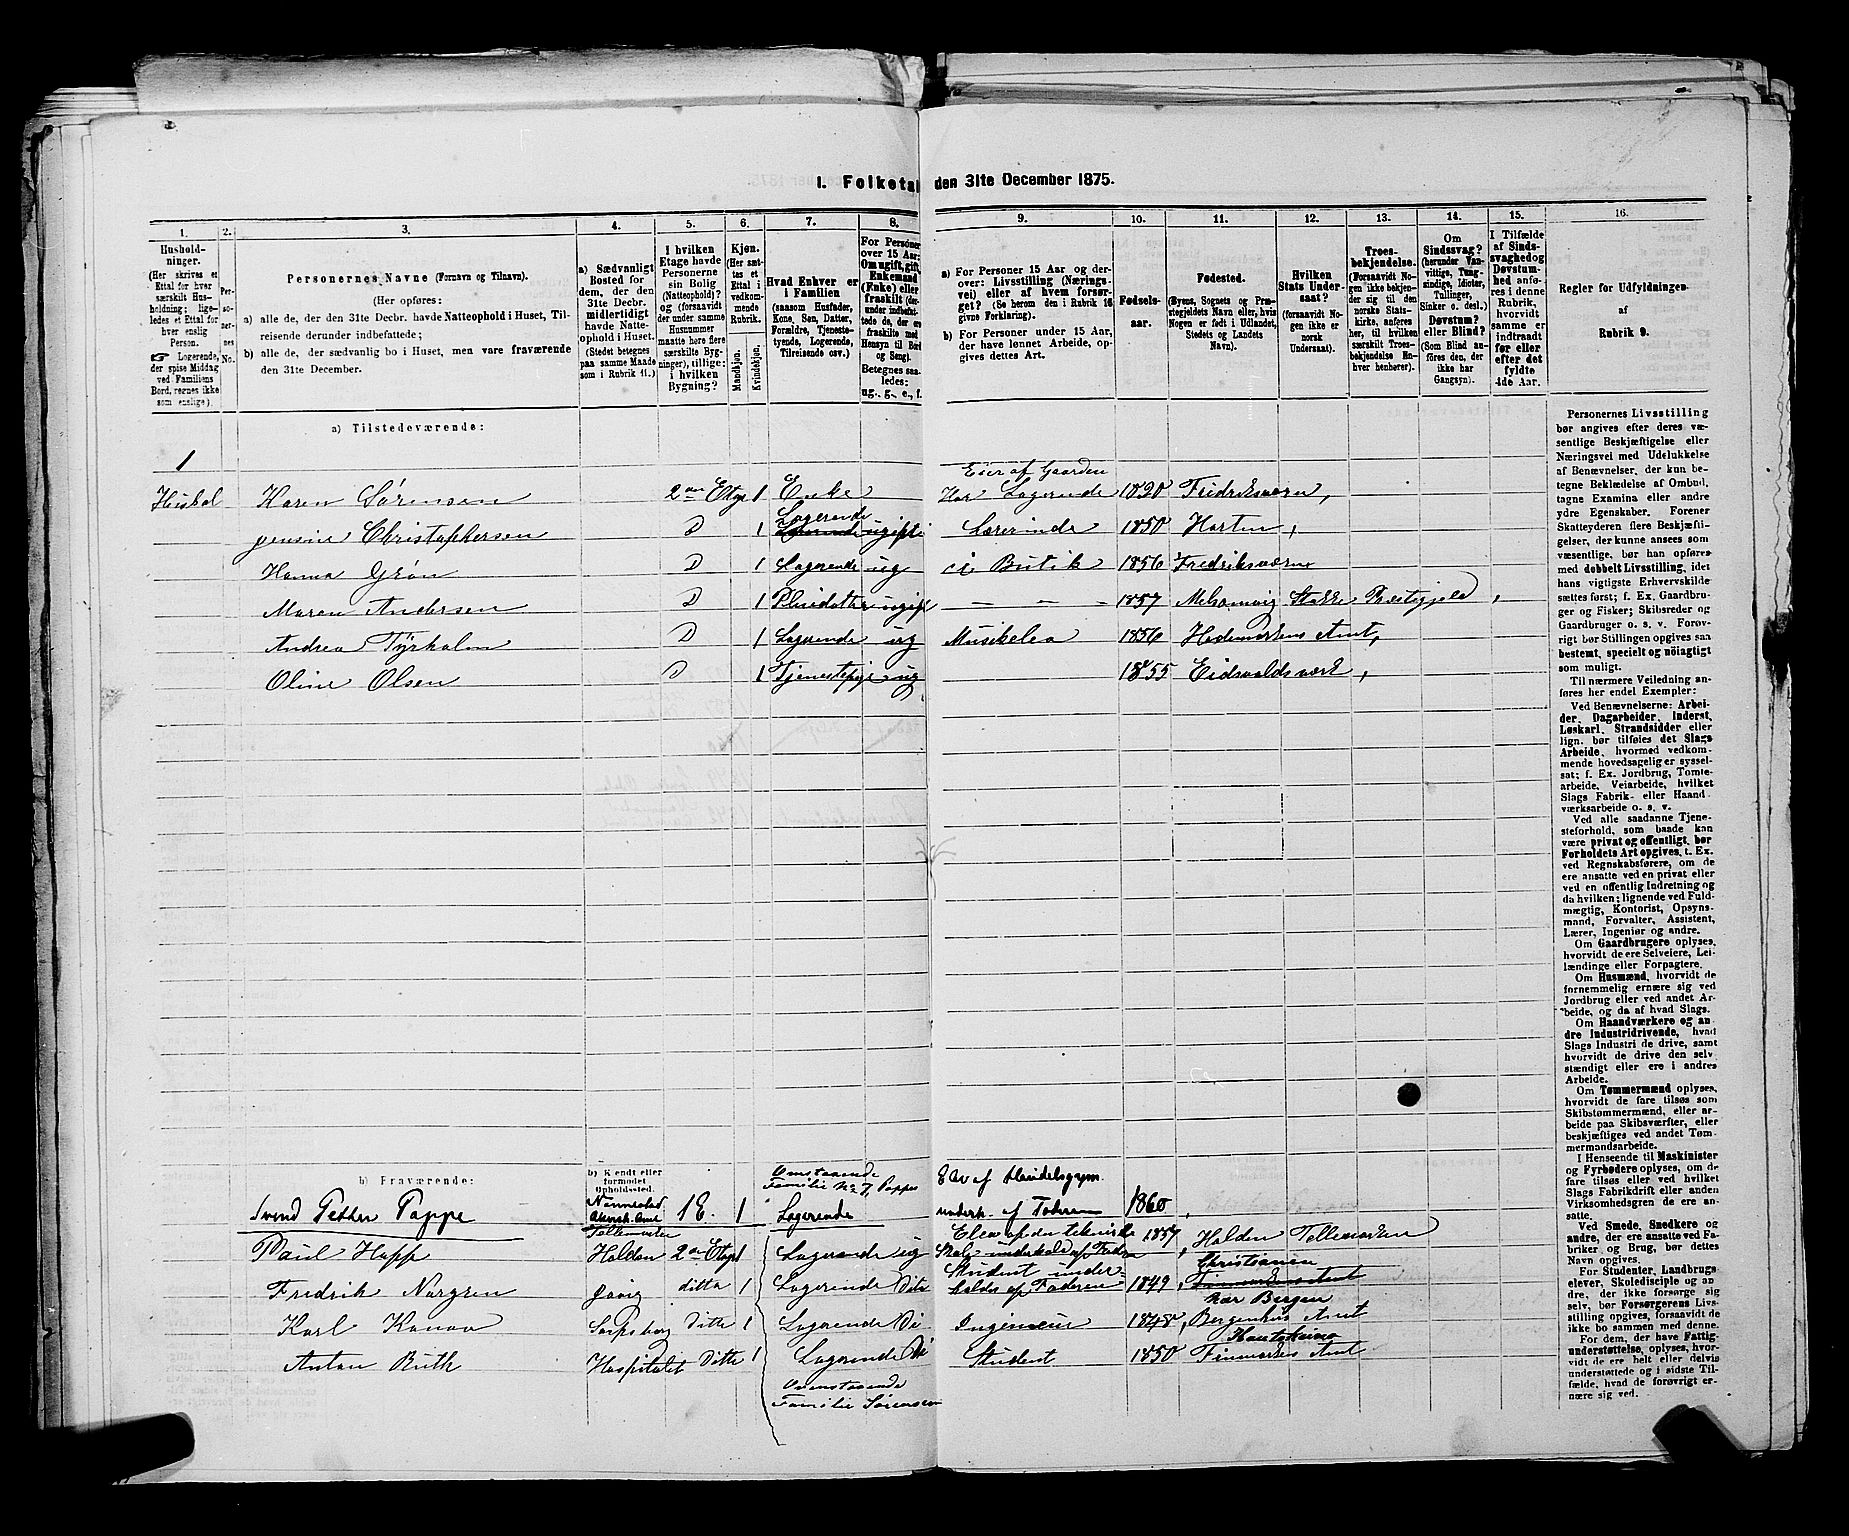 I. Folketal den 31te December 1875.
1. 2. 3. 4. 5. 6. 7. 8. 9. 10. 11. 12. 13. 14. 15. 16.
Hushold-
ninger.
(Her skrives et
Ettal for hver
særskilt Hus-
holdning; lige-
ledes et Ettal for
hver enslig
Person.
☞ Logerende,
der spise Middag
ved Familiens
Bord, regnes ikke
som enslige).
Per-
so-
ner-
nes
No.
Personernes Navne (Fornavn og Tilnavn).
(Her opføres:
a) alle de, der den 31te Decbr. havde Natteophold i Huset, Til-
reisende derunder indbefattede;
b) alle de, der sædvanlig bo i Huset, men vare fraværende
den 31te December.
a) Sædvanligt
Bosted for
dem, der den
31te Decbr.
midlertidigt
havde Natte-
ophold i Huset.
(Stedet betegnes
paa samme Maade
som i Rubrik 11.)
I hvilken
Etage havde
Personerne
sin Bolig
(Natteophold)?
og (forsaavidt
der under samme
Husnummer
maatte høre flere
særskilte Byg-
ninger), tillige:
i hvilken
Bygning?
Kjøn.
(Her sæt-
tes et
Ettal i
vedkom-
mende
Rubrik.
Mandkjøn.
Kvindekjøn.
Hvad Enhver er
i Familien
(saasom Husfader,
Kone, Søn, Datter,
Forældre, Tjeneste-
tyende, Logerende,
Tilreisende osv.)
For Personer
over 15 Aar:
Om ugift, gift,
Enkemand
(Enke) eller
fraskilt (der-
under indbefat-
tede de, der ere
fraskilte med
Hensyn til Bord
og Seng).
Betegnes saa-
ledes:
ug., g., e., f.
a) For Personer 15 Aar og der-
over: Livsstilling (Nærings-
vei) eller af hvem forsør-
get? (Se herom den i Rubrik 16
givne Forklaring).
b) For Personer under 15 Aar,
der have lønnet Arbeide, op-
gives dettes Art.
Fødsels-
aar.
Fødested.
(Byens, Sognets og Præ-
stegjeldets Navn eller, hvis
Nogen er født i Udlandet,
Stedets og Landets
Navn).
Hvilken
Stats Under-
saat?
(forsaavidt No-
gen ikke er
norsk
Undersaat).
Troes-
bekjendelse.
(Forsaavidt No-
gen ikke bekjen-
der sig til den
norske Stats-
kirke, anføres
her, til hvilken
særskilt Troes-
bekjendelse En-
hver henhører).
Om
Sindssvag?
(herunder Van-
vittige, Tung-
sindige, Idioter,
Tullinger,
Sinker o. desl.)
Døvstum?
eller Blind?
(Som Blind an-
føres den, der
ikke har
Gangsyn).
I Tilfælde
af Sinds-
svaghed og
Døvstum-
hed anføres
i denne
Rubrik,
hvorvidt
samme er
indtraadt
før eller
efter det
fyldte
4de Aar.
Regler for Udfyldningen
af
Rubrik 9.
a) Tilstedeværende:
1
Eier af Gaarden
Karen Sørensen 2den Etage 1 Enke Har Logerende 1820 Fredriksværn,
Logerende
Christophersen D 1 Logerende ugift Lærerinde 1850 Horten,
Hanna Grøn D 1 Logerende ug i Butik 1856 Fredriksværn
Maren Andersen D 1 Pleiedatter ugift — — — 1857 Melsomvig Stokke Præstegjeld,
Andrea Tyrholm D 1 Logerende ug 1856 Hedemarkens Amt,
Oline Olsen D 1 ug 1855 Eidsvoldsværk,
Personernes Livsstilling
bør angives efter deres væ-
sentlige Beskjæftigelse eller
Næringsvei med Udelukkelse
af Benævnelser, der kun be-
tegne Beklædelse af Ombud,
tagne Examina eller andre
ydre Egenskaber. Forener
Skatteyderen flere Beskjæfti-
gelser, der kunne ansees som
væsentlige, bør han opføres
med dobbelt Livsstilling, idet
hans vigtigste Erhvervskilde
sættes først; f. Ex. Gaardbru-
ger og Fisker; Skibsreder og
Gaardbruger o. s. v. Forøv-
rigt bør Stillingen opgives saa
bestemt, specielt og nöiagtigt
som muligt.
Til nærmere Veiledning an-
føres her endel Exempler:
Ved Benævnelserne: Arbei-
der, Dagarbeider, Inderst,
Løskarl, Strandsidder eller
lign. bør tilføies det Slags
Arbeide, hvormed vedkom-
mende hovedsagelig er syssel-
sat; f. Ex. Jordbrug, Tomte-
arbeide, Veiarbeide, hvilket
Slags Fabrik- eller Haand-
værksarbeide o. s. v.
Ved alle saadanne Tjene-
steforhold, som baade kan
være privat og offentligt, bør
Forholdets Art opgives, t. Ex.
ved Regnskabsførere, om de
ere ansatte ved en privat eller
ved en offentlig Indretning og
da hvilken; lignende ved Fuld-
mægtig, Kontorist, Opsyns-
mand, Forvalter, Assistent,
Lærer, Ingeniør og andre.
Om Gaardbrugere oplyses,
hvorvidt de ere Selveiere, Lei-
lændinge eller Forpagtere.
Om Husmænd, hvorvidt de
fornemmelig ernære sig ved
Jordbrug eller ved andet Ar-
beide, og da af hvad Slags.
Om Haandværkere og an-
dre Industridrivende, hvad
Slags Industri de drive, samt
hvorvidt de drive den selv-
stændigt eller ere i andres
Arbeide.
Om Tømmermænd oplyses,
hvorvidt de fare tilsøs som
Skibstømmermænd, eller ar-
beide paa Skibsværfter, eller
beskjæftiges ved andet Tøm-
mermandsarbeide.
I Henseende til Maskinister
og Fyrbødere oplyses, om de
fare tilsøs eller ved hvilket
Slags Fabrikdrift eller anden
Virksomhedsgren de ere an-
satte.
Ved Smede, Snedkere og
andre, der ere ansatte ved Fa-
briker og Brug, bør dettes
Navn opgives.
For Studenter, Landbrugs-
elever, Skoledisciple og an-
dre, der ikke forsørge sig
selv, bør Forsørgerens Livs-
stilling opgives, forsaavidt de
ikke bo sammen med denne.
For dem, der have Fattig-
understøttelse, oplyses, hvor-
vidt de ere helt eller delvis
understøttede og i sidste Til-
fælde, hvad de forøvrigt er-
nære sig ved.
b) Fraværende:
b) Kjendt eller
formodet
Opholdssted.
Omstaaende
Familie No 7, Poppes
Elev af Handelsgym.
Svend Petter Poppe 1 E. 1 Logerende underh. af Faderen 1860,
Elev af den tekniske
Paul Hopp Holden 2den Etage 1 Logerende ug Skole underholdt af Faderen 1857, Holden Tellemarken
Student under- Christiania
Fredrik Norgren Gjøvig ditto 1 Logerende Dito holdes af Faderen 1849,
nær Bergen
Karl Sarpsborg Ditto 1 Logerende Di Ingeniør 1848, Bergenhus Amt
Kautokeino
Anton Buth Hospitalet Ditto 1 Logerende Student 1850 Finmarkens Amt
Ovenstaaende
Familie Sørensen